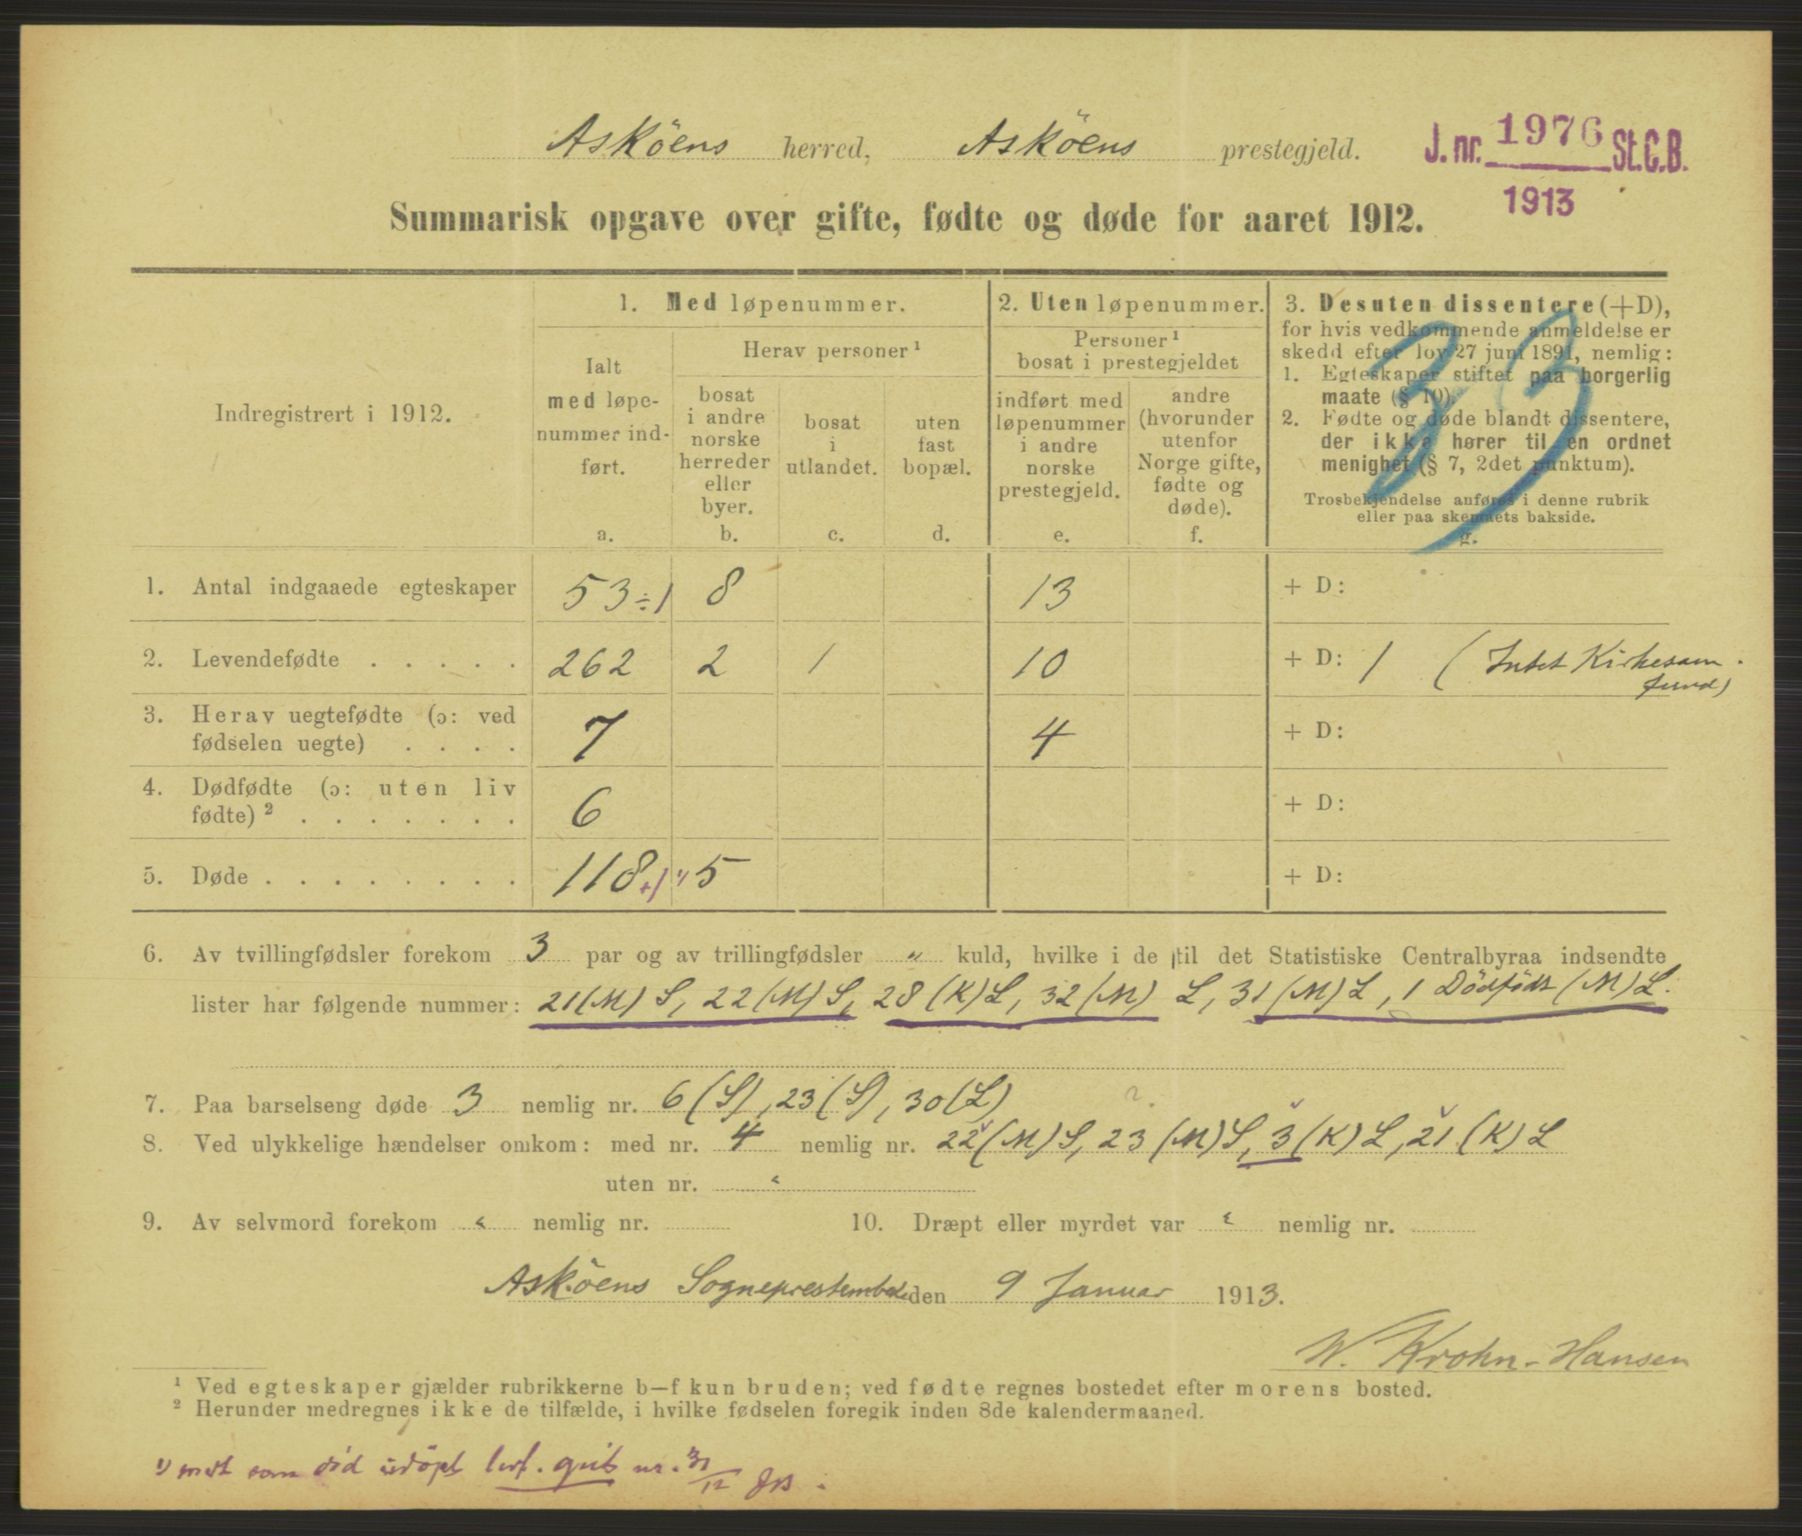 Asköens herred, Asköens prestegjeld.
J. nr. 1976 St. C. B.
1913
Summarisk opgave over gifte, fødte og døde for aaret 1912.
23
Indregistrert i 1912.
1. Med løpenummer.
Ialt med løpenummer indført.
a.
Herav personer ¹
bosat i andre norske herreder eller byer.
b.
bosat i utlandet.
c.
uten fast bopæl.
d.
2. Uten løpenummer.
Personer ¹ bosat i prestegjeldet
indført med løpenummer i andre norske prestegjeld.
e.
andre (hvorunder utenfor Norge gifte, fødte og døde).
f.
3. Desuten dissentere (+D),
for hvis vedkommende anmeldelse er
skedd efter lov 27 juni 1891, nemlig:
1. Egteskaper stiftet paa borgerlig
maate (§ 10).
2. Fødte og døde blandt dissentere,
der ikke hører til en ordnet
menighet (§ 7, 2det punktum).
Trosbekjendelse anføres i denne rubrik
eller paa skemaets bakside.
g.
1. Antal indgaaede egteskaper 53 ÷1 8 13 + D:
2. Levendefødte . . . . . 262 2 1 10 + D: 1 (Intet Kirkesam-
fund)
3. Herav uegtefødte (ɔ: ved
fødselen uegte) . . . . 7 4 + D:
4. Dødfødte (ɔ: uten liv
fødte) ² . . . . . . . 6 + D:
5. Døde . . . . . . . . 118 +1 ¹⁾ 5 + D:
6. Av tvillingfødsler forekom 3 par og av trillingfødsler " kuld, hvilke i de til det Statistiske Centralbyraa indsendte
lister har følgende nummer: 21 (M) S, 22 (M) S, 28 (K) L, 32 (M) L, 31 (M) L, 1 Dödfödt (M) L.
7. Paa barselseng døde 3 nemlig nr. 6 (S), 23 (S), 30 (L) ?
8. Ved ulykkelige hændelser omkom: med nr. 4 nemlig nr. 22 (M) S, 23 (M) S, 3 (K) L, 21 (K) L
uten nr. "
9. Av selvmord forekom " nemlig nr. 10. Dræpt eller myrdet var " nemlig nr.
Asköens Sogneprestembede den 9 Januar 1913.
W. Krohn-Hansen
¹ Ved egteskaper gjælder rubrikkerne b—f kun bruden; ved fødte regnes bostedet efter morens bosted.
² Herunder medregnes ikke de tilfælde, i hvilke fødselen foregik inden 8de kalendermaaned.
¹⁾ som död udöpt nr. 31/12